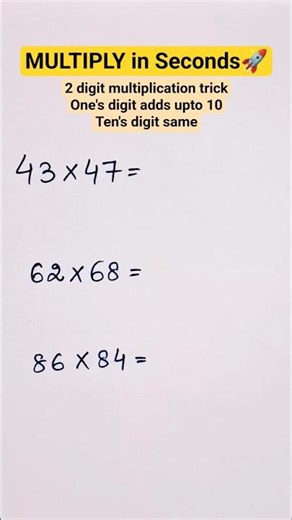 MULTIPLY in Seconds🚀
2 digit multiplication trick
One's digit adds upto 10
Ten's digit same
43×47=
62×68=
86×84=